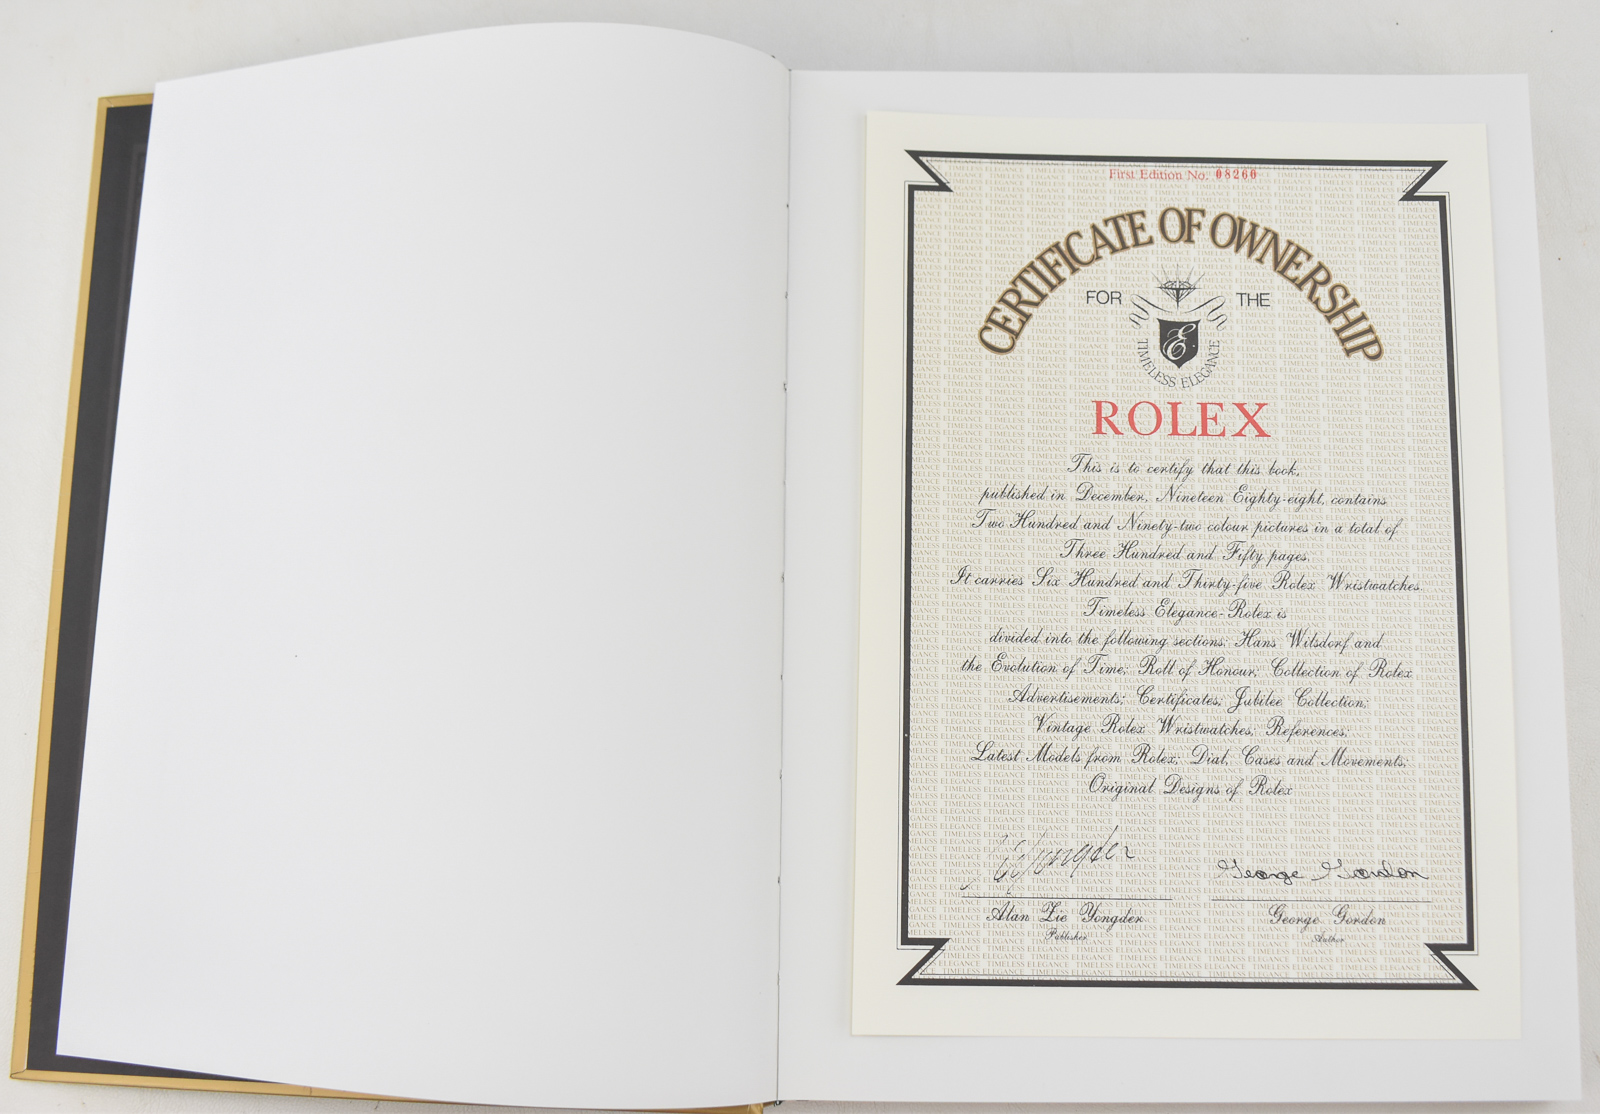 First Edition No. 08260
CERTIFICATE OF OWNERSHIP
FOR THE
E
TIMELESS ELEGANCE
ROLEX
This is to certify that this book,
published in December, Nineteen Eighty-eight, contains
Two Hundred and Ninety-two colour pictures in a total of
Three Hundred and Fifty pages.
It carries Six Hundred and Thirty-five Rolex Wristwatches.
Timeless Elegance-Rolex is
divided into the following sections: Hans Wilsdorf and
the Evolution of Time; Roll of Honour; Collection of Rolex
Advertisements; Certificates; Jubilee Collection;
Vintage Rolex Wristwatches; References;
Latest Models from Rolex; Dial, Cases and Movements;
Original Designs of Rolex
George Gordon
Alan Zie Yongder George Gordon
Publisher Author